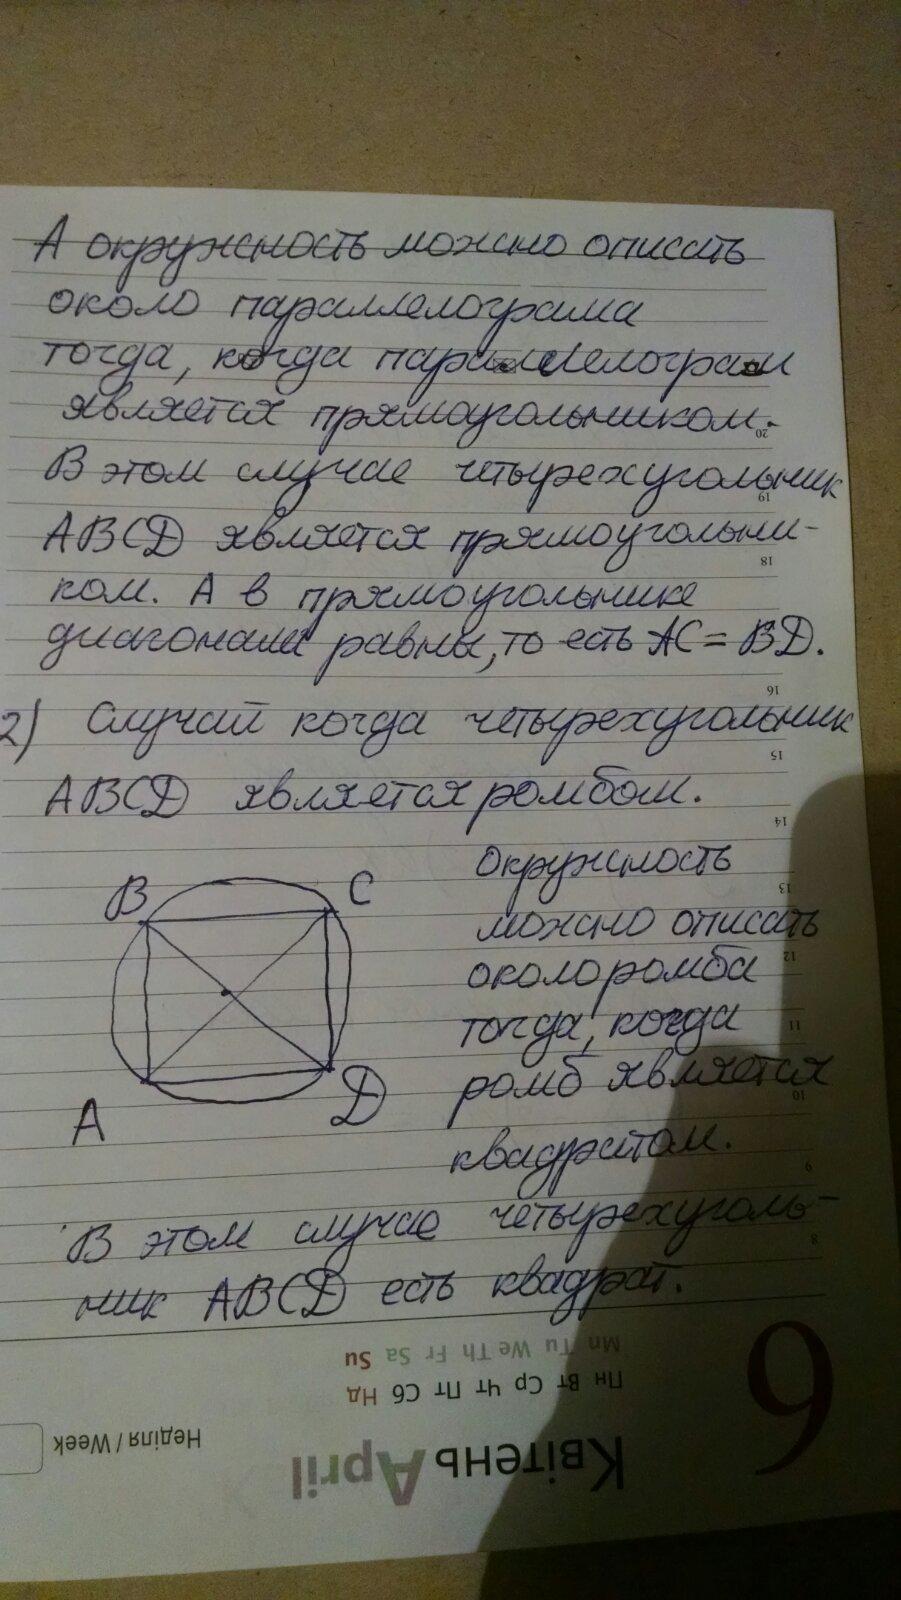 А окружность можно описать
около параллелограма
тогда, когда параллелограм
является прямоугольником.
В этом случае четырехугольник
ABCD является прямоугольни-
ком. А в прямоугольнике
диагонали равны, то есть AC = BD.
2) Случай когда четырехугольник
ABCD является ромбом.
окружность
можно описать
около ромба
тогда, когда
ромб является
квадратом.
B
C
A
D
В этом случае четырехуголь-
ник ABCD есть квадрат.
20
19
18
16
15
14
13
12
11
10
9
8
Mn Tu We Th Fr Sa Su
Пн Вт Ср Чт Пт Сб Нд
Неділя / Week
Квітень April
9